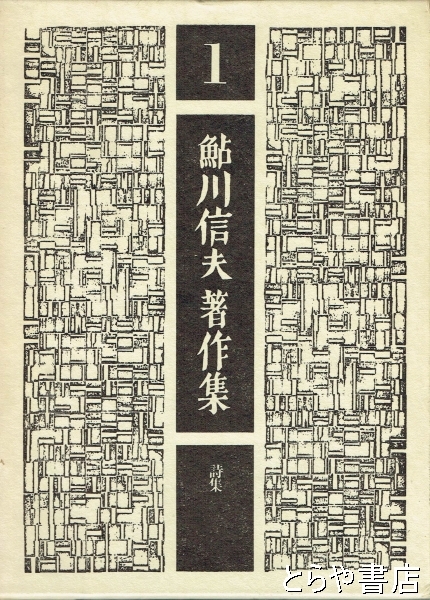 1
鮎川信夫著作集
詩集
とらや書店